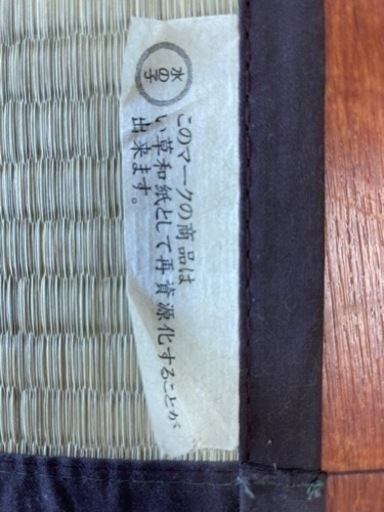 水の子
このマークの商品は
い草和紙として再資源化することが
出来ます。